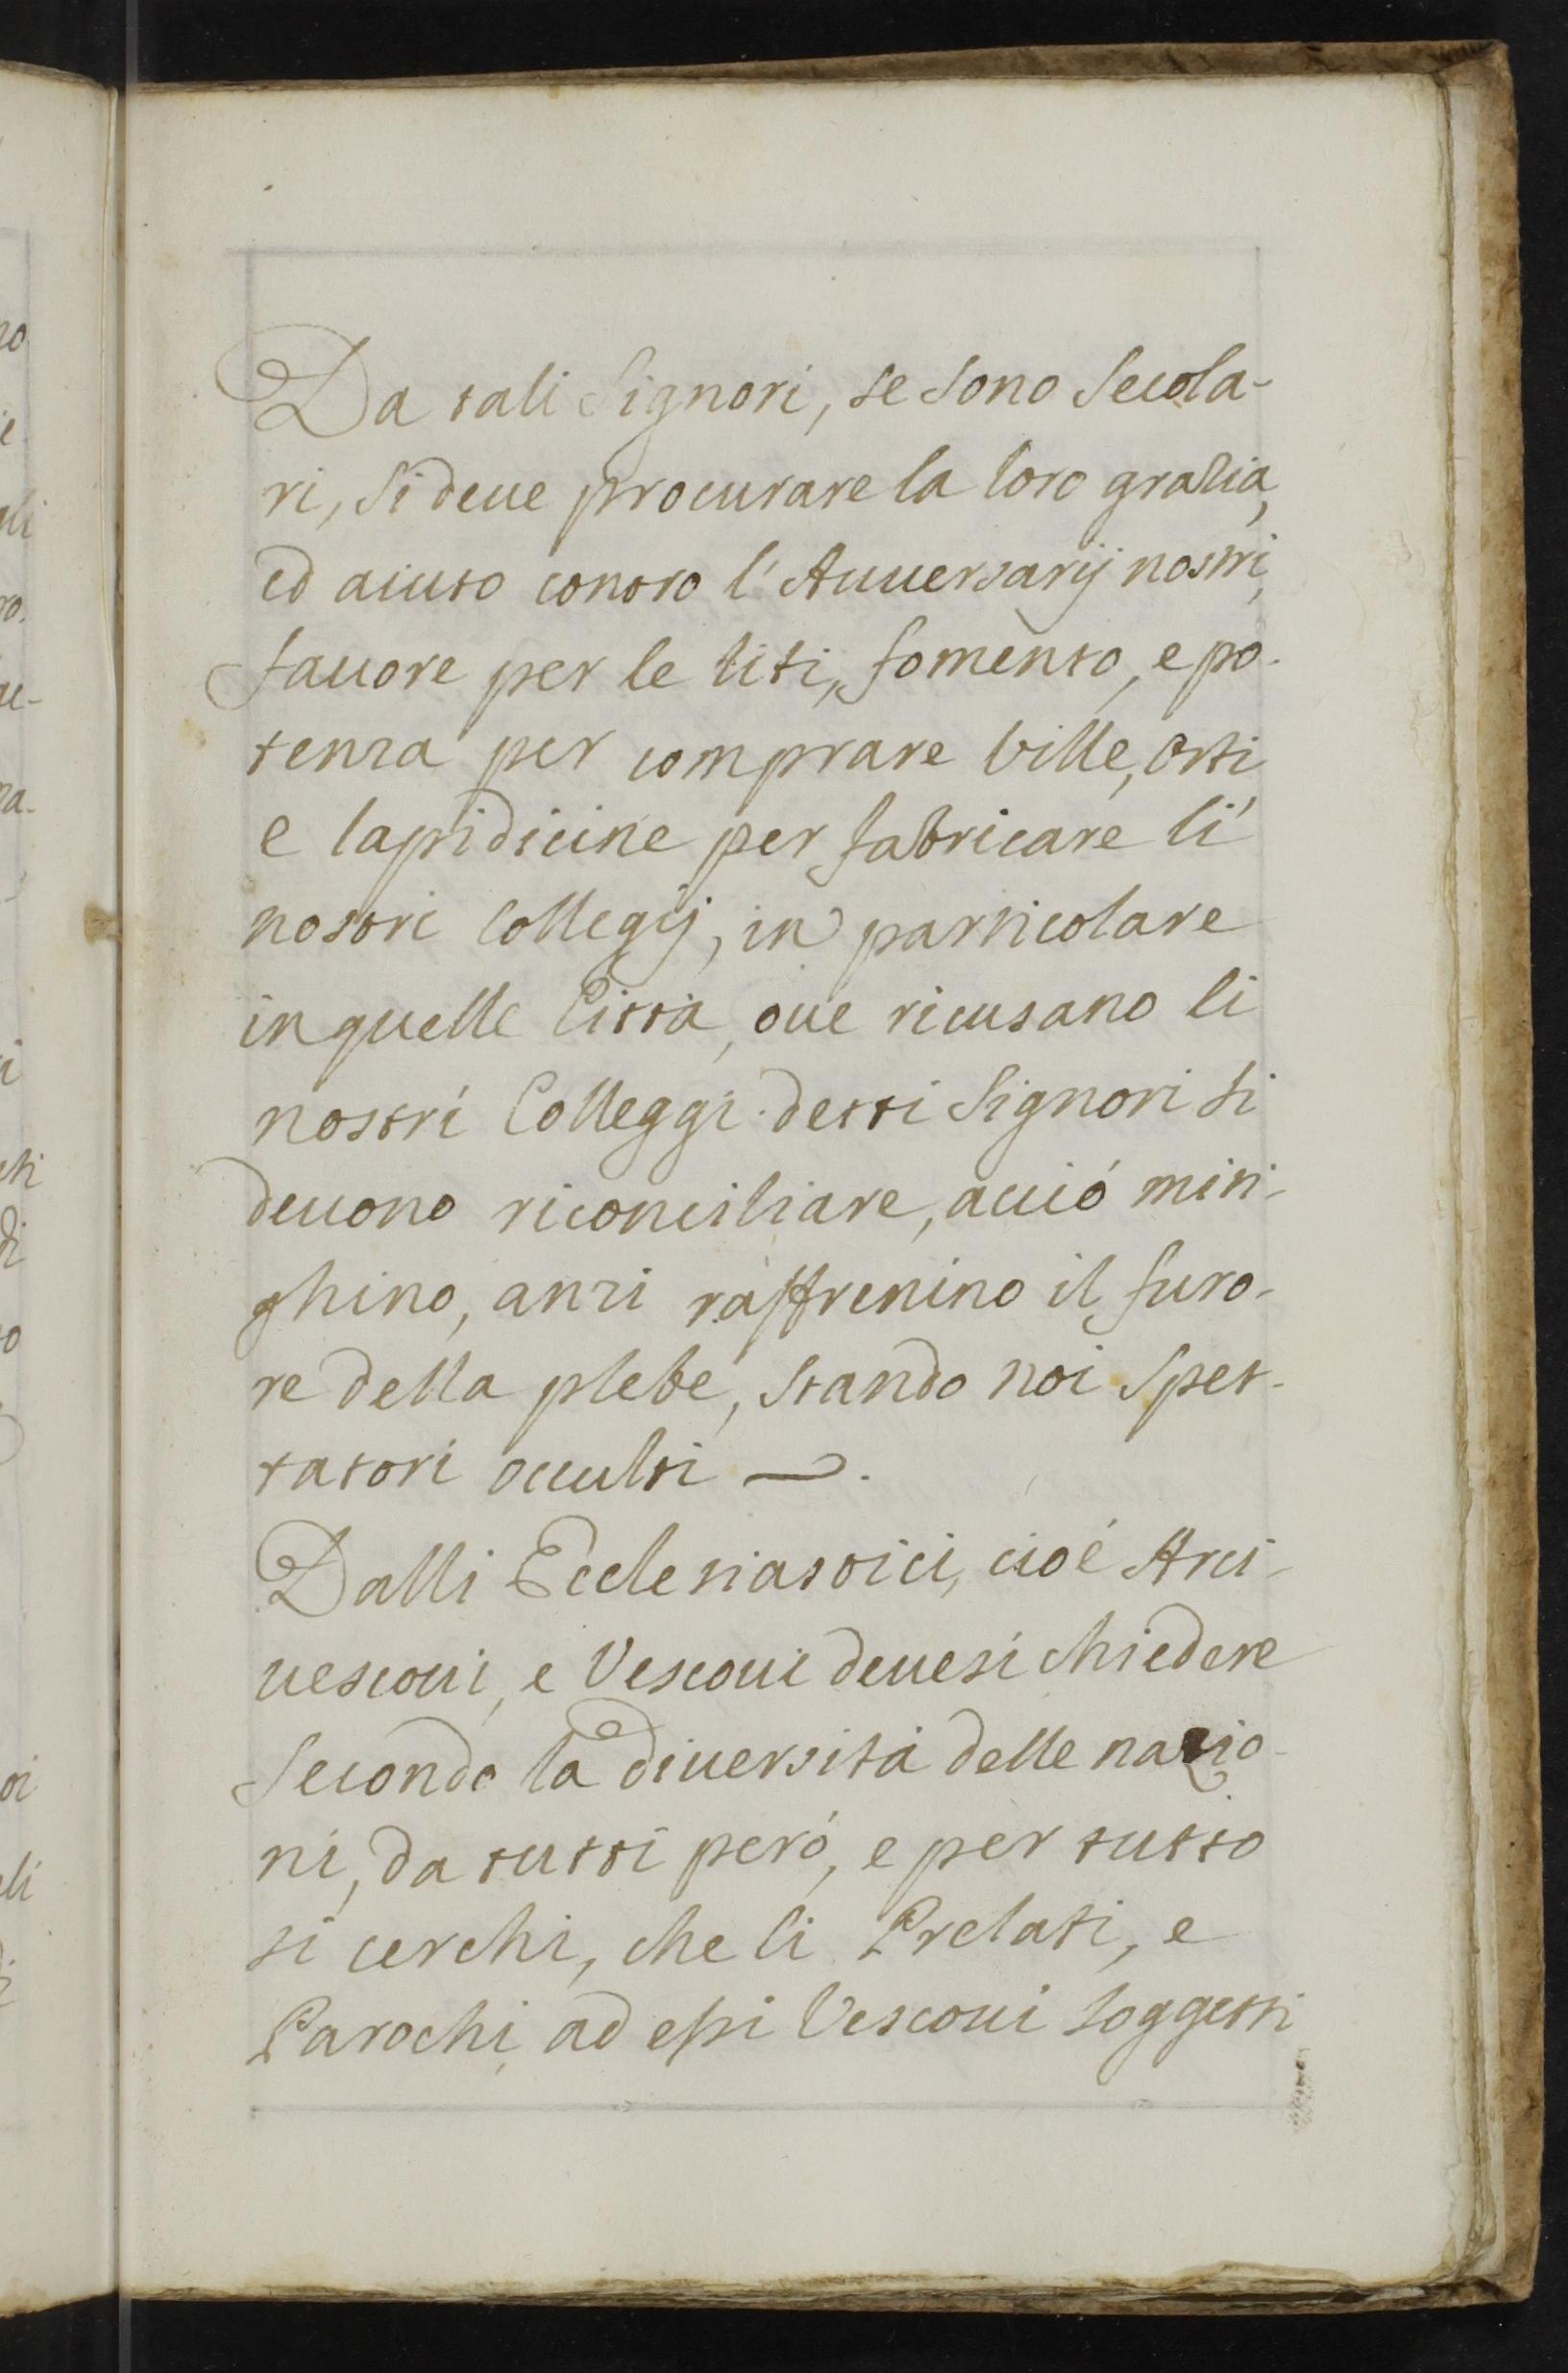 Da tali Signori, se sono Secola-
ri, si deue procurare la loro grazia,
ed aiuto contro l'Auuersarij nostri,
fauore per le liti, fomento, e po-
tenza per comprare Ville, Orti
e lapidicine per fabricare li
nostri Collegij, in particolare
in quelle Città, oue ricusano li
nostri Colleggi. detti Signori si
deuono riconciliare, acció miti-
ghino, anzi raffrenino il furo-
re della plebe, stando noi spet-
tatori occulti.
Dalli Ecclesiastici, cioé Arci-
uescoui, e Vescoui deuesi chiedere
secondo la diuersitá delle nazio-
ni, da tutti peró, e per tutto
si cerchi, che li Prelati, e
Parochi ad essi Vescoui soggetti